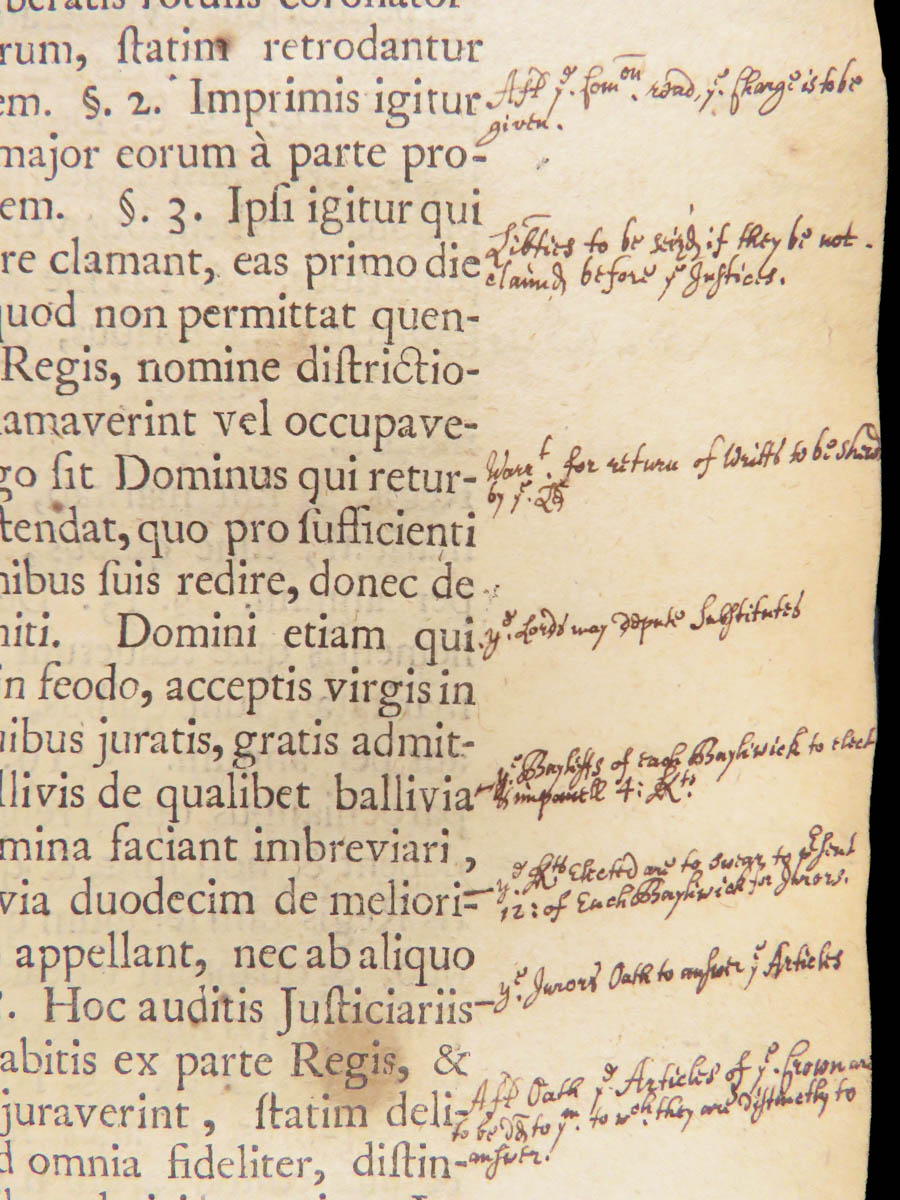 beratis rotulis coronator-
rum, ſtatim retrodantur
em. §. 2. Imprimis igitur
major eorum à parte pro-
em. §. 3. Ipſi igitur qui
re clamant, eas primo die
quod non permittat quen-
Regis, nomine diſtrictio-
lamaverint vel occupave-
go ſit Dominus qui retur-
tendat, quo pro ſufficienti
nibus ſuis redire, donec de
niti. Domini etiam qui
in feodo, acceptis virgis in
uibus juratis, gratis admit-
llivis de qualibet ballivia
mina faciant imbreviari,
via duodecim de meliori-
appellant, nec ab aliquo
. Hoc auditis Juſticiariis
abitis ex parte Regis, &
juraverint, ſtatim deli-
d omnia fideliter, diſtin-
Aft yᵉ. Comᵒⁿ. read, yᵉ. Charge is to be
given.
Lib̄ties to be seizd if they be not
claimd before yᵉ Justices.
Warrᵗ. for return of Writts to be shewd
by yᵉ. Ld
yᵉ. Lords may depute Substitutes
yᵉ. Bayliffs of each Bayliwick to elect
& impanell 4: Kᵗˢ.
yᵉ. Kᵗˢ Elected are to swear to pᵉsent
12: of Each Bayliwick for Jurors.
yᵉ. Jurors Oath to answer yᵉ Articles
Aft Oath yᵉ Articles of yᵉ. Crown are
to be dd to yᵐ. to wᶜʰ. they are distinctly to
answer.